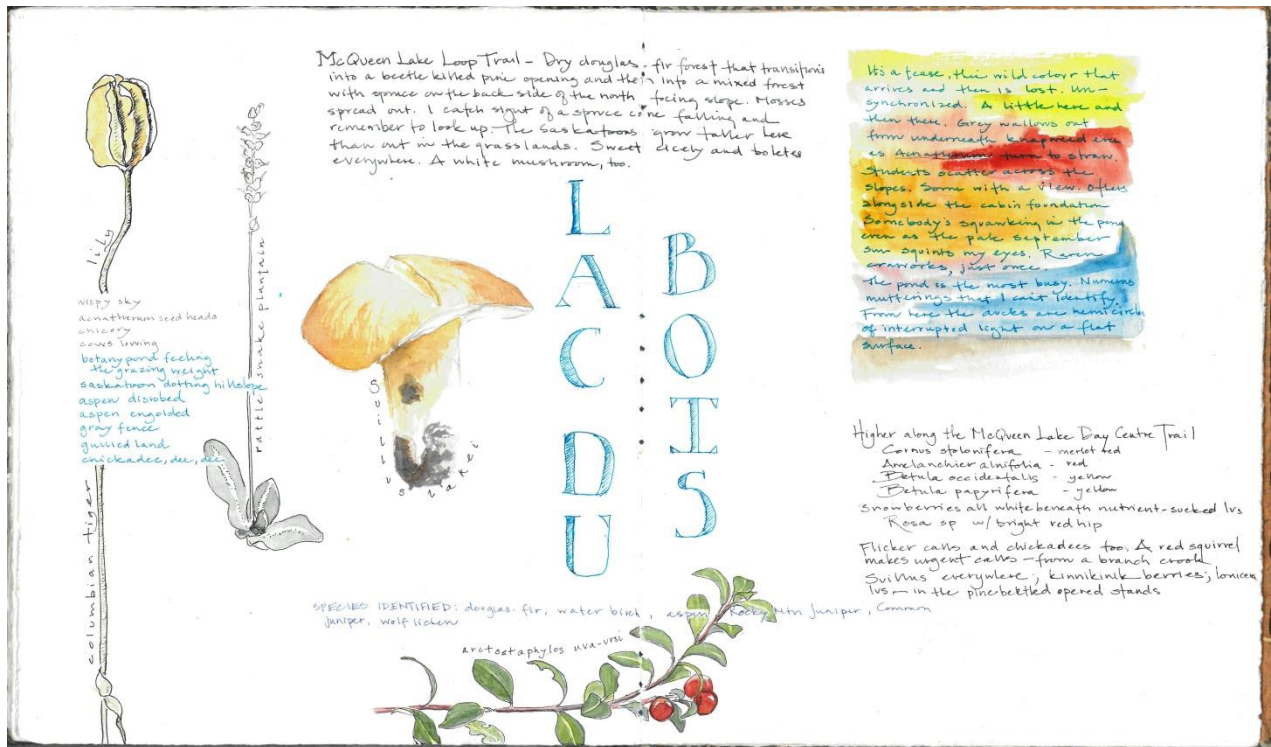 McQueen Lake Loop Trail - Dry douglas-fir forest that transitions
into a beetle killed pine opening and then into a mixed forest
with spruce on the back side of the north-facing slope. Mosses
spread out. I catch sight of a spruce cone falling and
remember to look up. The saskatoons grow taller here
than out in the grasslands. Sweet cicely and boletes
everywhere. A white mushroom, too.
LAC DU
BOIS
columbian tiger lily
wispy sky
acnatherum seed heads
chizory
cows lowing
botany pond feeling
the grazing weight
saskatoon dotting hillslope
aspen disrobed
aspen engolded
gray fence
gullied land
chickadee, dee, dee
rattle snake plantain
Suillus lakei
It's a tease, this wild colour that
arrives and then is lost. Un-
synchronized. A little here and
then there. Grey wallows out
from underneath knapweed even
as Acnatherum turn to straw.
Students scatter across the
slopes. Some with a view. Others
alongside the cabin foundation
Somebody's squawking in the pond
even as the pale september
sun squints my eyes. Raven
craworks, just once.
The pond is the most busy.
mutterings that I can't identify.
From here the ducks are hemicircles
of interrupted light on a flat
surface.
Higher along the McQueen Lake Day Centre Trail
Cornus stolonifera - merlot red
Amelanchier alnifolia - red
Betula occidentalis - yellow
Betula papyrifera - yellow
Snowberries all white beneath nutrient-sucked lvs
Rosa sp w/ bright red hip
Flicker calls and chickadees too. A red squirrel
makes urgent calls - from a branch crook
Suillus everywhere; kinnikinik berries; lonicera
lvs - in the pine beetled opened stands
SPECIES IDENTIFIED: douglas-fir, water birch, aspen, Rocky Mtn Juniper, Common
juniper, wolf lichen
arctostaphylos uva-ursi